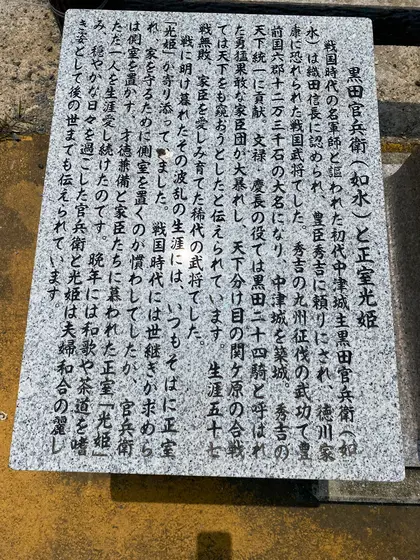 黒田官兵衛（如水）と正室光姫
戦国時代の名軍師と謳われた初代中津城主黒田官兵衛（如
水）は織田信長に認められ、豊臣秀吉に頼りにされ、徳川家
康に恐れられた戦国武将でした。秀吉の九州征伐の武功で豊
前国六郡十二万三千石の大名になり、中津城を築城。秀吉の
天下統一に貢献、文禄・慶長の役では黒田二十四騎と呼ばれ
た勇猛果敢な家臣団が大暴れし、天下分け目の関ケ原の合戦
では天下をも窺おうとしたと伝えられています。生涯五十七
戦無敗、家臣を愛しみ育てた稀代の武将でした。
戦に明け暮れたその波乱の生涯には、いつもそばに正室
「光姫」が寄り添っていました。戦国時代には世継ぎが求めら
れ、家を守るために側室を置くのが慣わしでしたが、官兵衛
は側室を置かず、才徳兼備と家臣たちに慕われた正室「光姫」
ただ一人を生涯愛し続けたのです。晩年には和歌や茶道を嗜
み、穏やかな日々を過ごした官兵衛と光姫は夫婦和合の麗し
き姿として後の世までも伝えられています。